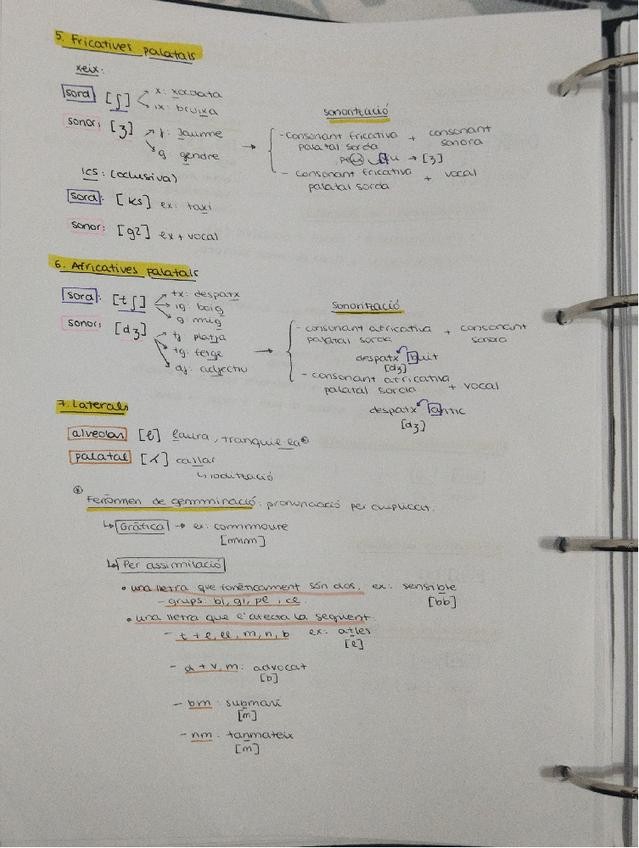 5. Fricatives palatals
xeix:
sord: [ʃ] x: xocolata
ix: bruixa
sonor: [ʒ] j: Jaume
g gendre
sonorització
- consonant fricativa palatal sorda + consonant sonora
→ [ʒ]
- consonant fricativa palatal sorda + vocal
ICS: (oclusiva)
sord: [ks] ex: taxi
sonor: [gz] ex + vocal
6. Africatives palatals
sord: [tʃ] tx: despatx
ig: boig
g mig
sonor: [dʒ] tj platja
tg: fetge
dj: adjectiu
sonorització
- consonant africativa palatal sorda + consonant sonora
despatx buit
[dʒ]
- consonant africativa palatal sorda + vocal
despatx antic
[dʒ]
7. Laterals
alveolar [l] Laura, tranquil·la
palatal [ʎ] callar
↳ iodització
Fenòmen de gemminació: pronunciació per duplicat.
↳ Gràfica → ex: commmoure
[mmm]
↳ Per assimilació
• una lletra que fonèticament són dos, ex: sensible
- grups: bl, gl, [bb]
• una lletra que l'afecta la següent.
- t + l, ll, m, n, b ex: atles
[l]
- d + v, m: advocat
[b]
- bm: submarí
[m]
- nm: tanmateix
[m]